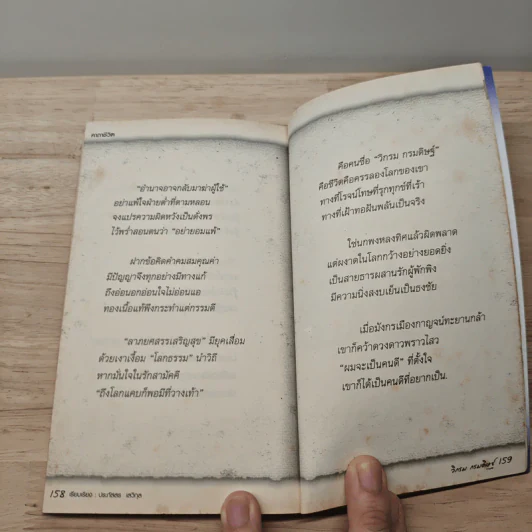 คาถาชีวิต
"อำนาจอาจกลับมาฆ่าผู้ใช้"
อย่าแพ้ใจฝ่ายต่ำที่ตามหลอน
จงแปรความผิดหวังเป็นดั่งพร
ไว้พร่ำสอนตนว่า "อย่ายอมแพ้"
ฝากข้อคิดคำคมสมคุณค่า
มีปัญญาจึงทุกอย่างมีทางแก้
ถึงอ่อนอกอ่อนใจไม่อ่อนแอ
ทองเนื้อแท้พึงกระทำแต่กรรมดี
"ลาภยศสรรเสริญสุข" มียุคเสื่อม
ด้วยเงาเงื่อม "โลกธรรม" นำวิถี
หากมั่นใจในรักสามัคคี
"ถึงโลกแคบก็พอมีที่วางเท้า"
158 เรียบเรียง : ประภัสสร เสวิกุล
คือคนชื่อ "วิกรม กรมดิษฐ์"
คือชีวิตคือครรลองโลกของเขา
ทางที่โรจน์โทษที่รุกทุกข์ที่เร้า
ทางที่เฝ้าทอฝันพลันเป็นจริง
ใช่นกพงหลงทิศแล้วผิดพลาด
แต่ผงาดในโลกกว้างอย่างยอดยิ่ง
เป็นสายธารผสานรักผู้พักพิง
มีความนิ่งสงบเย็นเป็นธงชัย
เมื่อมังกรเมืองกาญจน์ทะยานกล้า
เขาก็คว้าดวงดาวพราวไสว
"ผมจะเป็นคนดี" ที่ตั้งใจ
เขาก็ได้เป็นคนดีที่อยากเป็น.
วิกรม กรมดิษฐ์ 159